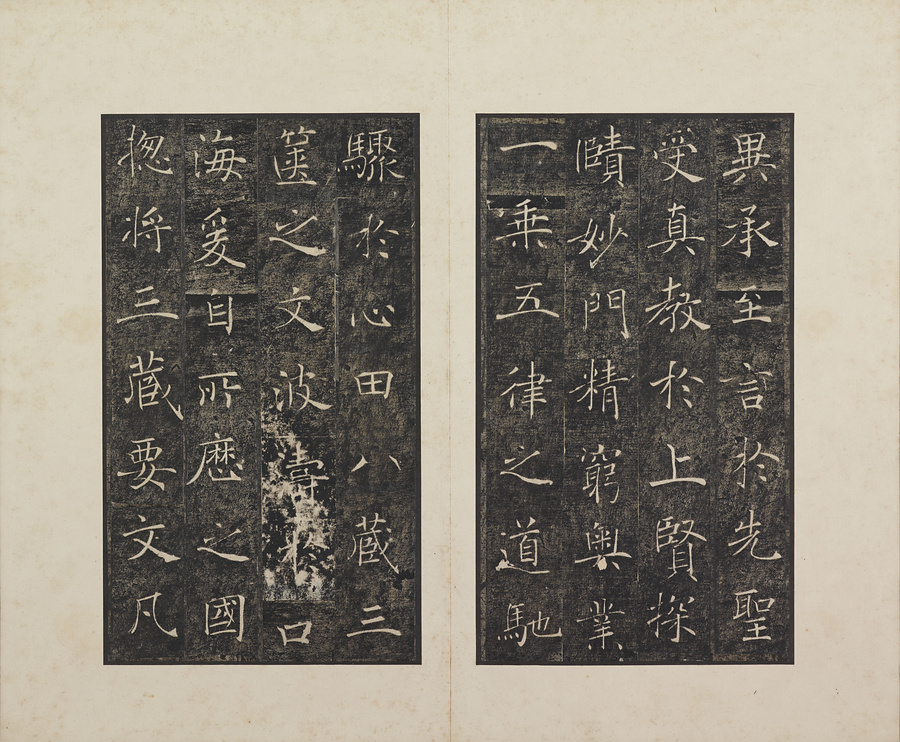 異承至言於先聖
受真教於上賢探
賾妙門精窮奧業
一乗五律之道馳
驟於心田八蔵三
篋之文波濤於口
海爰自所歷之國
揔將三蔵要文凡